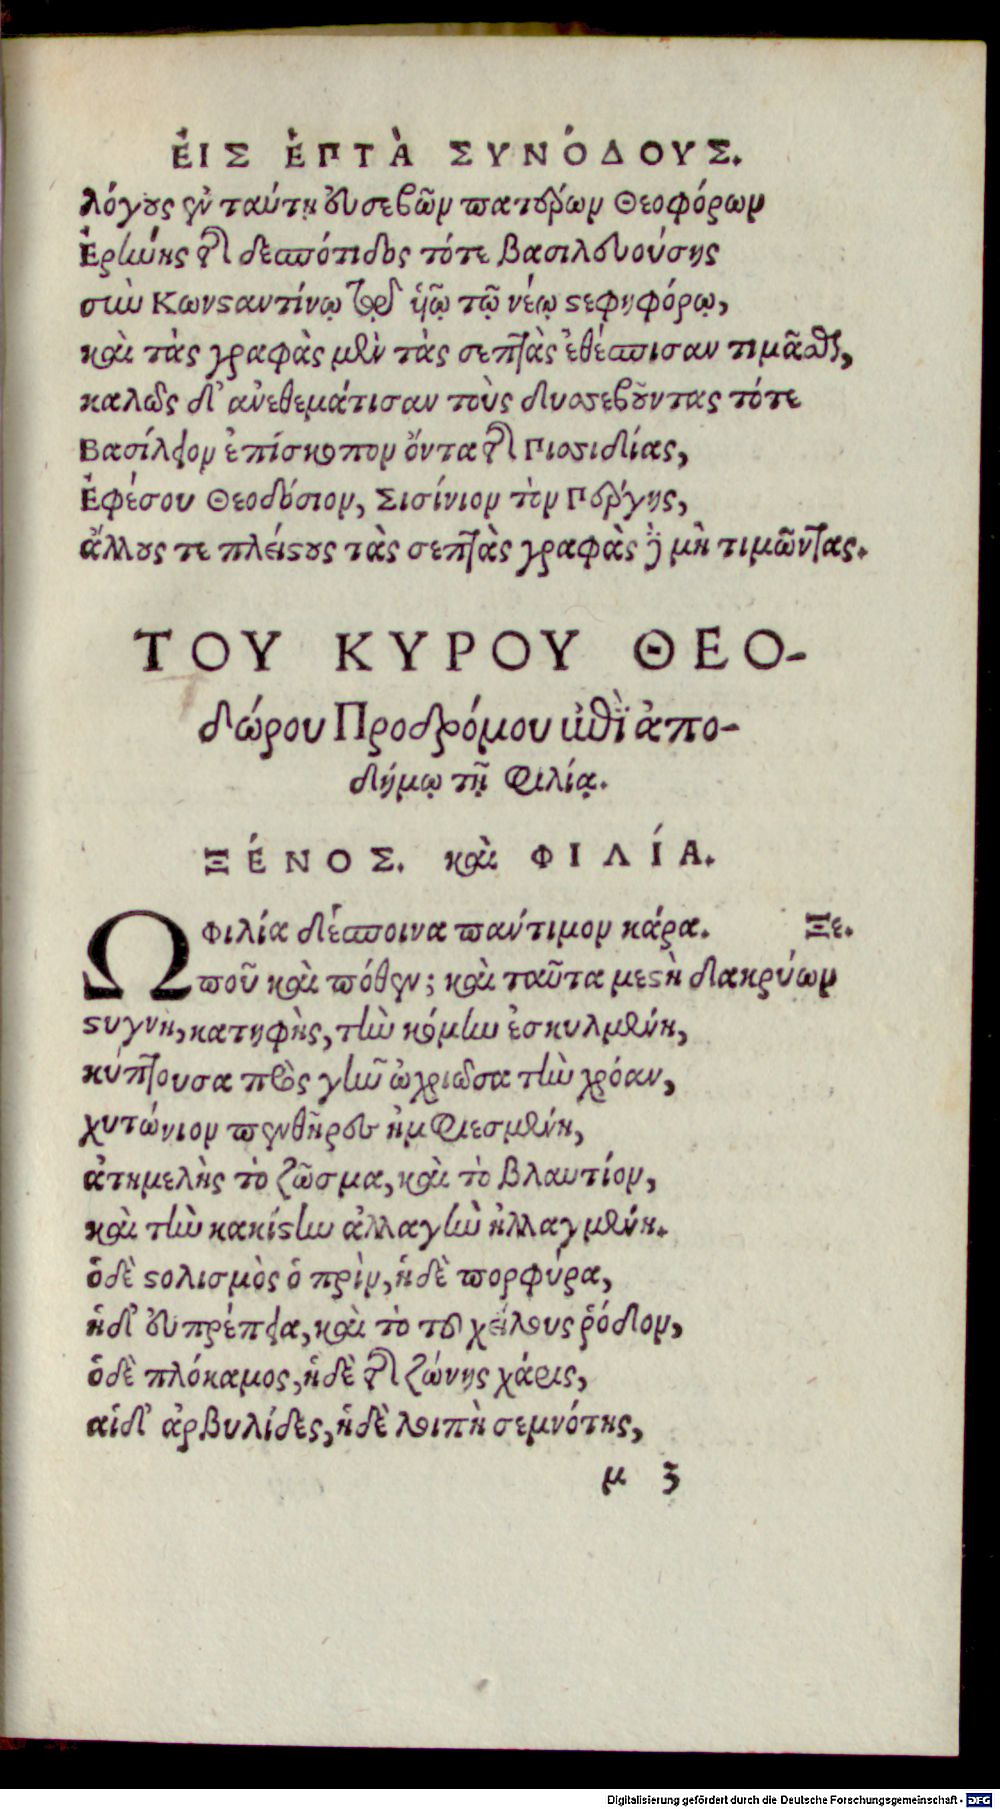 ἘΙΣ ἘΠΤᾺ ΣΥΝΌΔΟΥΣ.
λόγους ἐν ταύτῃ εὐσεβῶν πατέρων Θεοφόρων
Ἐρήνης τῆς δεσπότιδος τότε βασιλευούσης
σὺν Κωνσταντίνῳ τῷ ὑῷ τῷ νέῳ στεφηφόρῳ,
καὶ τὰς γραφὰς μὲν τὰς σεπτὰς ἐθέσπισαν τιμᾶσθαι,
καλῶς δ' ἀνεθεμάτισαν τοὺς δυσσεβοῦντας τότε
Βασίλειον ἐπίσκοπον ὄντα τῆς Πισσιδίας,
Ἐφέσου Θεοδόσιον, Σισίνιον τὸν Πέργης,
ἄλλους τε πλείστους τὰς σεπτὰς γραφὰς μὴ τιμῶντας.
ΤΟΥ ΚΥΡΟΥ ΘΕΟ-
δώρου Προδρόμου ἐπὶ ἀπο-
δήμῳ τῇ φιλίᾳ.
ΞΈΝΟΣ. καὶ ΦΙΛΊΑ.
Ω φιλία δέσποινα πάντιμον κάρα. Ξε.
ποῦ καὶ πόθεν; καὶ ταῦτα μεστὴ δακρύων
στυγνὴ, κατηφὴς, τὴν κόμην ἐσκυλμένη,
κύπτουσα πρὸς γῆν ὠχριῶσα τὴν χρόαν,
χυτώνιον πενθῆρες ἠμφιεσμένη,
ἀτημελὴς τὸ ζῶσμα, καὶ τὸ βλαυτίον,
καὶ τὴν κακίστην ἀλλαγὴν ἠλλαγμένη.
ὁδὲ στολισμὸς ὁ πρὶν, ἡδὲ πορφύρα,
ἡδ' εὐπρέπεια, καὶ τὸ τοῦ χείλους ῥόδον,
ὁδὲ πλόκαμος, ἡδὲ τῆς ζώνης χάρις,
αἱδ' ἀρβυλίδες, ἡδὲ λοιπὴ σεμνότης,
μ 3
Digitalisierung gefördert durch die Deutsche Forschungsgemeinschaft - DFG